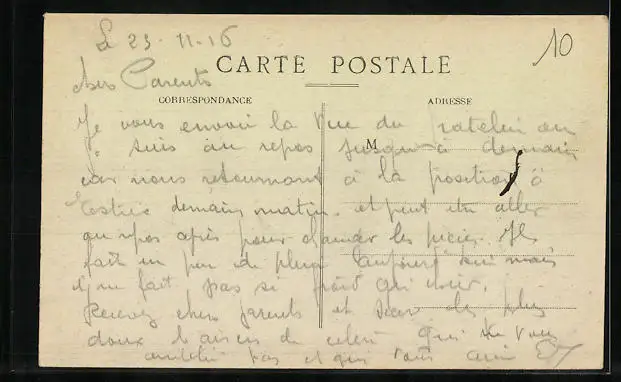 Le 23-11-16
10
chers Parents
CARTE POSTALE
CORRESPONDANCE
ADRESSE
Je vous envoi la vue du
M
suis au repos jusqu'à demain
car nous retournont à la position à
demain matin. et peut etre aller
au repos après pour changer les Il
fait un peu de pluie aujourd'hui mais
il ne fait pas si froid qu'hier.
Recevez chers parents et les plus
doux baisers de celui qui ne vous
pas et qui vous aime